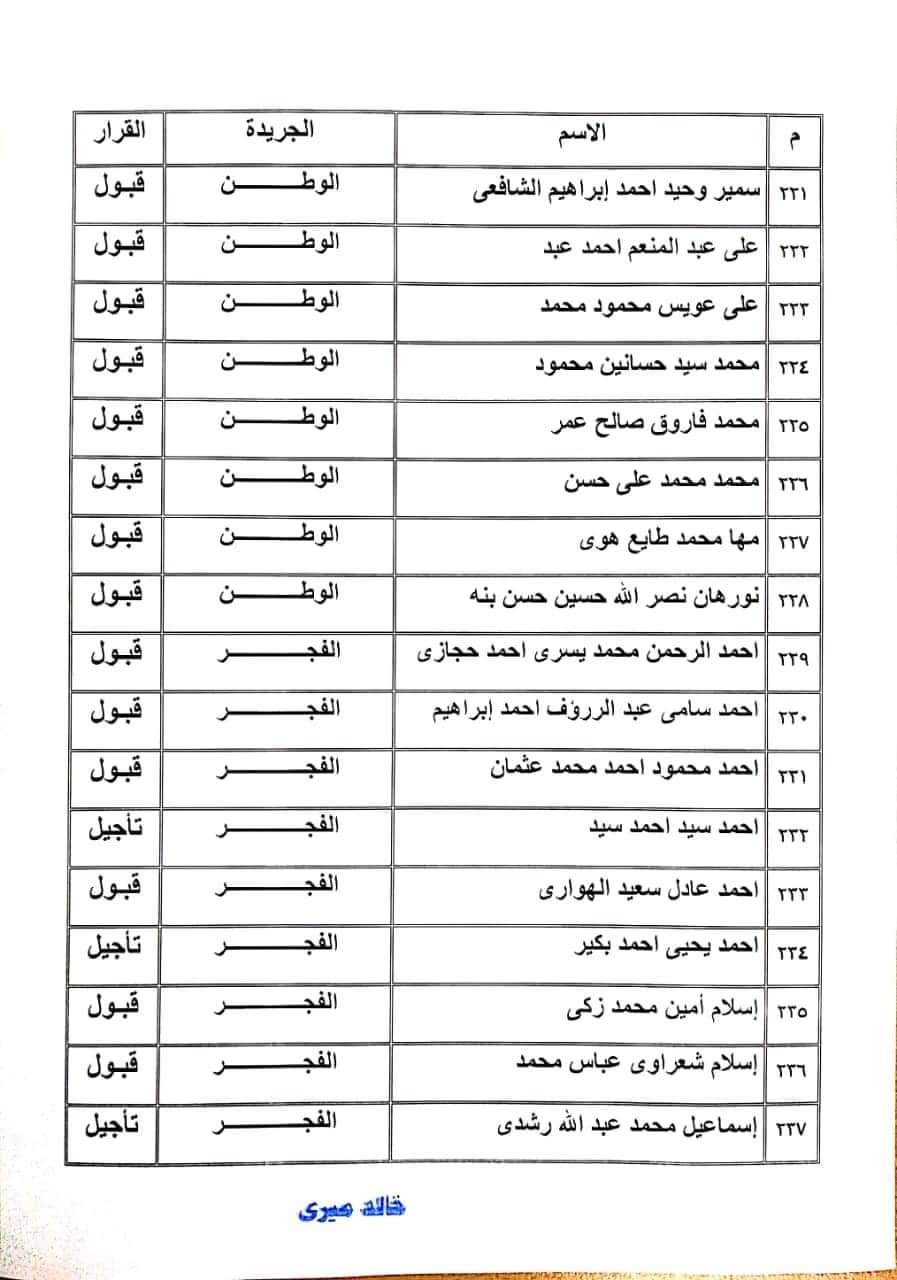 م الاسم الجريدة القرار
٢٢١ سمير وحيد احمد إبراهيم الشافعى الوطـــــــن قبول
٢٢٢ على عبد المنعم احمد عبد الوطـــــــن قبول
٢٢٣ على عويس محمود محمد الوطـــــــن قبول
٢٢٤ محمد سيد حسانين محمود الوطـــــــن قبول
٢٢٥ محمد فاروق صالح عمر الوطـــــــن قبول
٢٢٦ محمد محمد على حسن الوطـــــــن قبول
٢٢٧ مها محمد طايع هوى الوطـــــــن قبول
٢٢٨ نورهان نصر الله حسين حسن بنه الوطـــــــن قبول
٢٢٩ احمد الرحمن محمد يسرى احمد حجازى الفجـــــــر قبول
٢٣٠ احمد سامى عبد الرروؤف احمد إبراهيم الفجـــــــر قبول
٢٣١ احمد محمود احمد محمد عثمان الفجـــــــر قبول
٢٣٢ احمد سيد احمد سيد الفجـــــــر تأجيل
٢٣٣ احمد عادل سعيد الهوارى الفجـــــــر قبول
٢٣٤ احمد يحيى احمد بكير الفجـــــــر تأجيل
٢٣٥ إسلام أمين محمد زكى الفجـــــــر قبول
٢٣٦ إسلام شعراوى عباس محمد الفجـــــــر قبول
٢٣٧ إسماعيل محمد عبد الله رشدى الفجـــــــر تأجيل
خالد ميرى